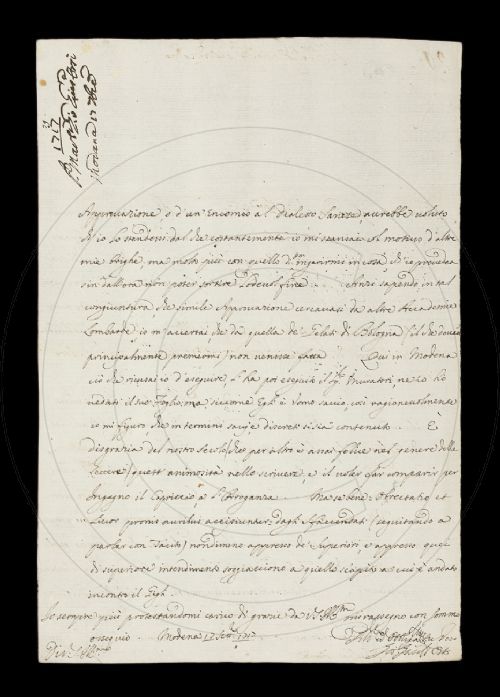 1717
Modena 17 
Approvazione, o d'un Encomio al Dialetto Sanese, avrebbe voluto
ch'io lo stendessi, dal che costantemente io mi scansai col motivo d'altre
mie brighe, ma molto più con quello di non ingerirmi in cosa, ch'io prevedea
sin d'allora non poter sortire lodevol fine. Anzi sapendo in tal
congiuntura che simile Approvazione cercavasi da altre Accademie
Lombarde, io m'accertai che da quella de' Gelati di Bologna (il che
principalmente premevami) non venisse fatta. Qui in Modena
ciò che ricusai io d'eseguire, l'ha poi eseguito il Muratori, ne io ho
veduti il suo Foglio, ma, siccome Egli è Uomo savio, così ragionevolmente
io mi figuro che in termini savj, e discreti si sia contenuto. È
disgrazia del nostro secolo (che per altro è assai felice nel genere delle
Lettere) quest'animosità nello scrivere, e il voler far comparir per
Ingegno il Capriccio e l'Arroganza. Ma se bene Obtrectatio et
Livor pronis auribus accipiuntur dagli sfaccendati (seguitando a
parlar con Tacito) nondimeno appresso de' Superiori, e appresso quei
di superiore intendimento soggiacciono a quello scapito a cui è andato
incontro il Gigli.
Io sempre più protestandomi carico di grazie da V.S. Ill.ma mi rassegno con sommo
ossequio. Modena 17 1717
Di V.S. Ill.ma